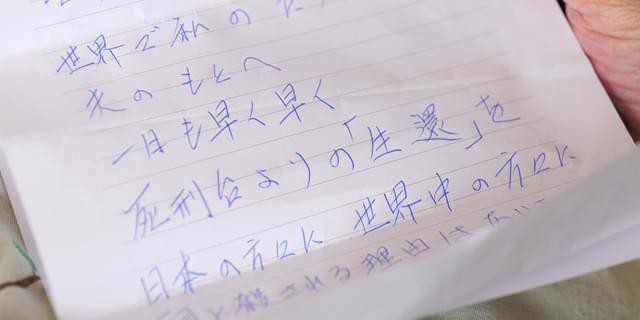 世界で私の
夫のもとへ
一日も早く早く
死刑台よりの「生還」を
日本の方々に 世界中の方々に
殺される理由は